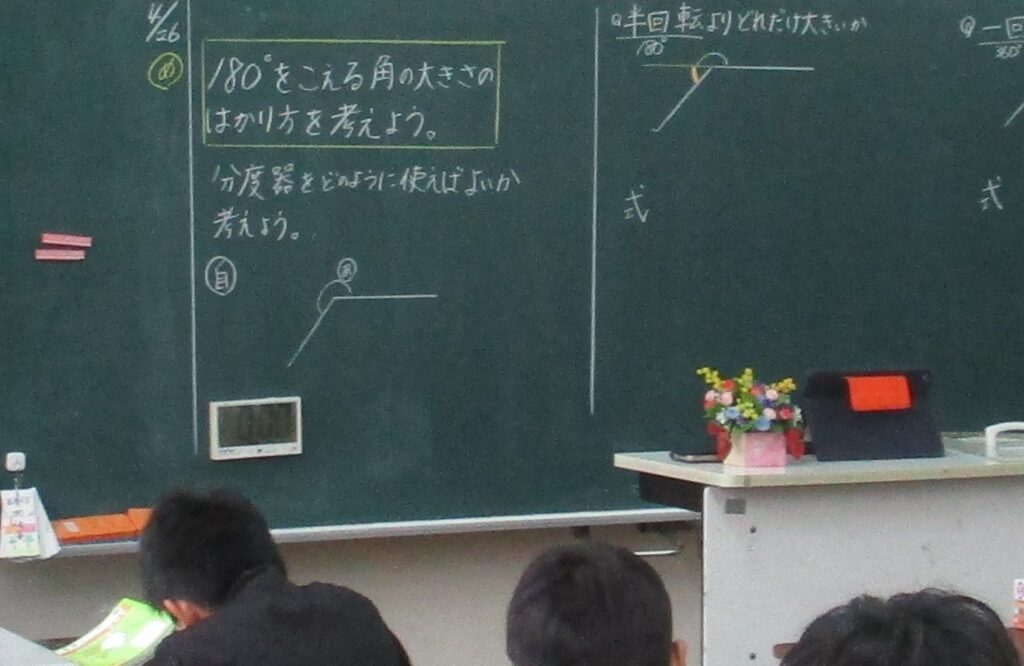 4/26
め
180°をこえる角の大きさの
はかり方を考えよう。
分度器をどのように使えばよいか
考えよう。
自
あ
半回転よりどれだけ大きいか
180°
式
一回
360°
式